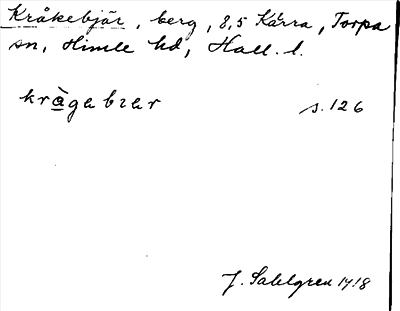 Kråkebjär, berg, 8,5 Kärra, Torpa
sn, Himle hd, Hall. l.
kràgabrar s. 126
J. Sahlgren 1918